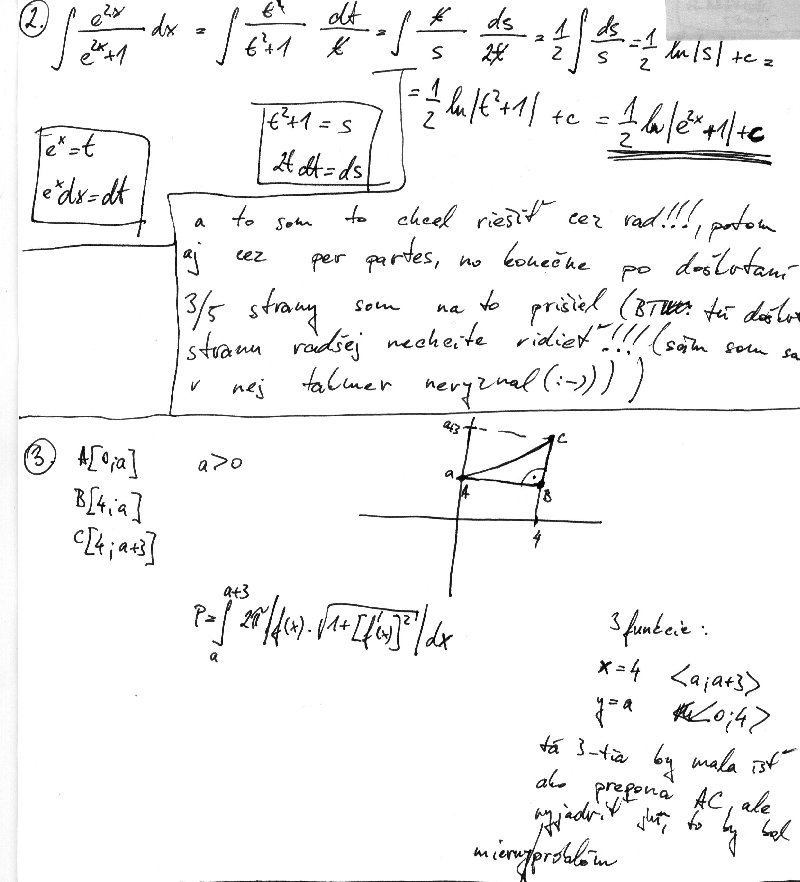 2. ∫ e^{2x}/(e^{2x}+1) dx = ∫ t²/(t²+1) dt/t = ∫ t/s ds/2t = 1/2 ∫ ds/s = 1/2 ln|s| + c =
= 1/2 ln|t²+1| + c = 1/2 ln|e^{2x}+1| + c
e^x = t
e^x dx = dt
t²+1 = s
2t dt = ds
a to som to chcel riešiť cez rad!!!, potom
aj cez per partes, no konečne po doškrtaní
3/5 strany som na to prišiel (BTW: tú
stranu radšej nechcite vidieť!!! (sám som sa
v nej takmer nevyznal (:-)))
3. A[0;a] a>0
B[4;a]
C[4;a+3]
a+3
C
a
A
B
4
P = ∫_a^{a+3} 2π |f(x) · √(1+[f'(x)]²)| dx
3 funkcie:
x=4 <a;a+3>
y=a <0;4>
tá 3-tia by mala ísť
ako prepona AC, ale
vyjadriť ju, to by bol
mierny problém